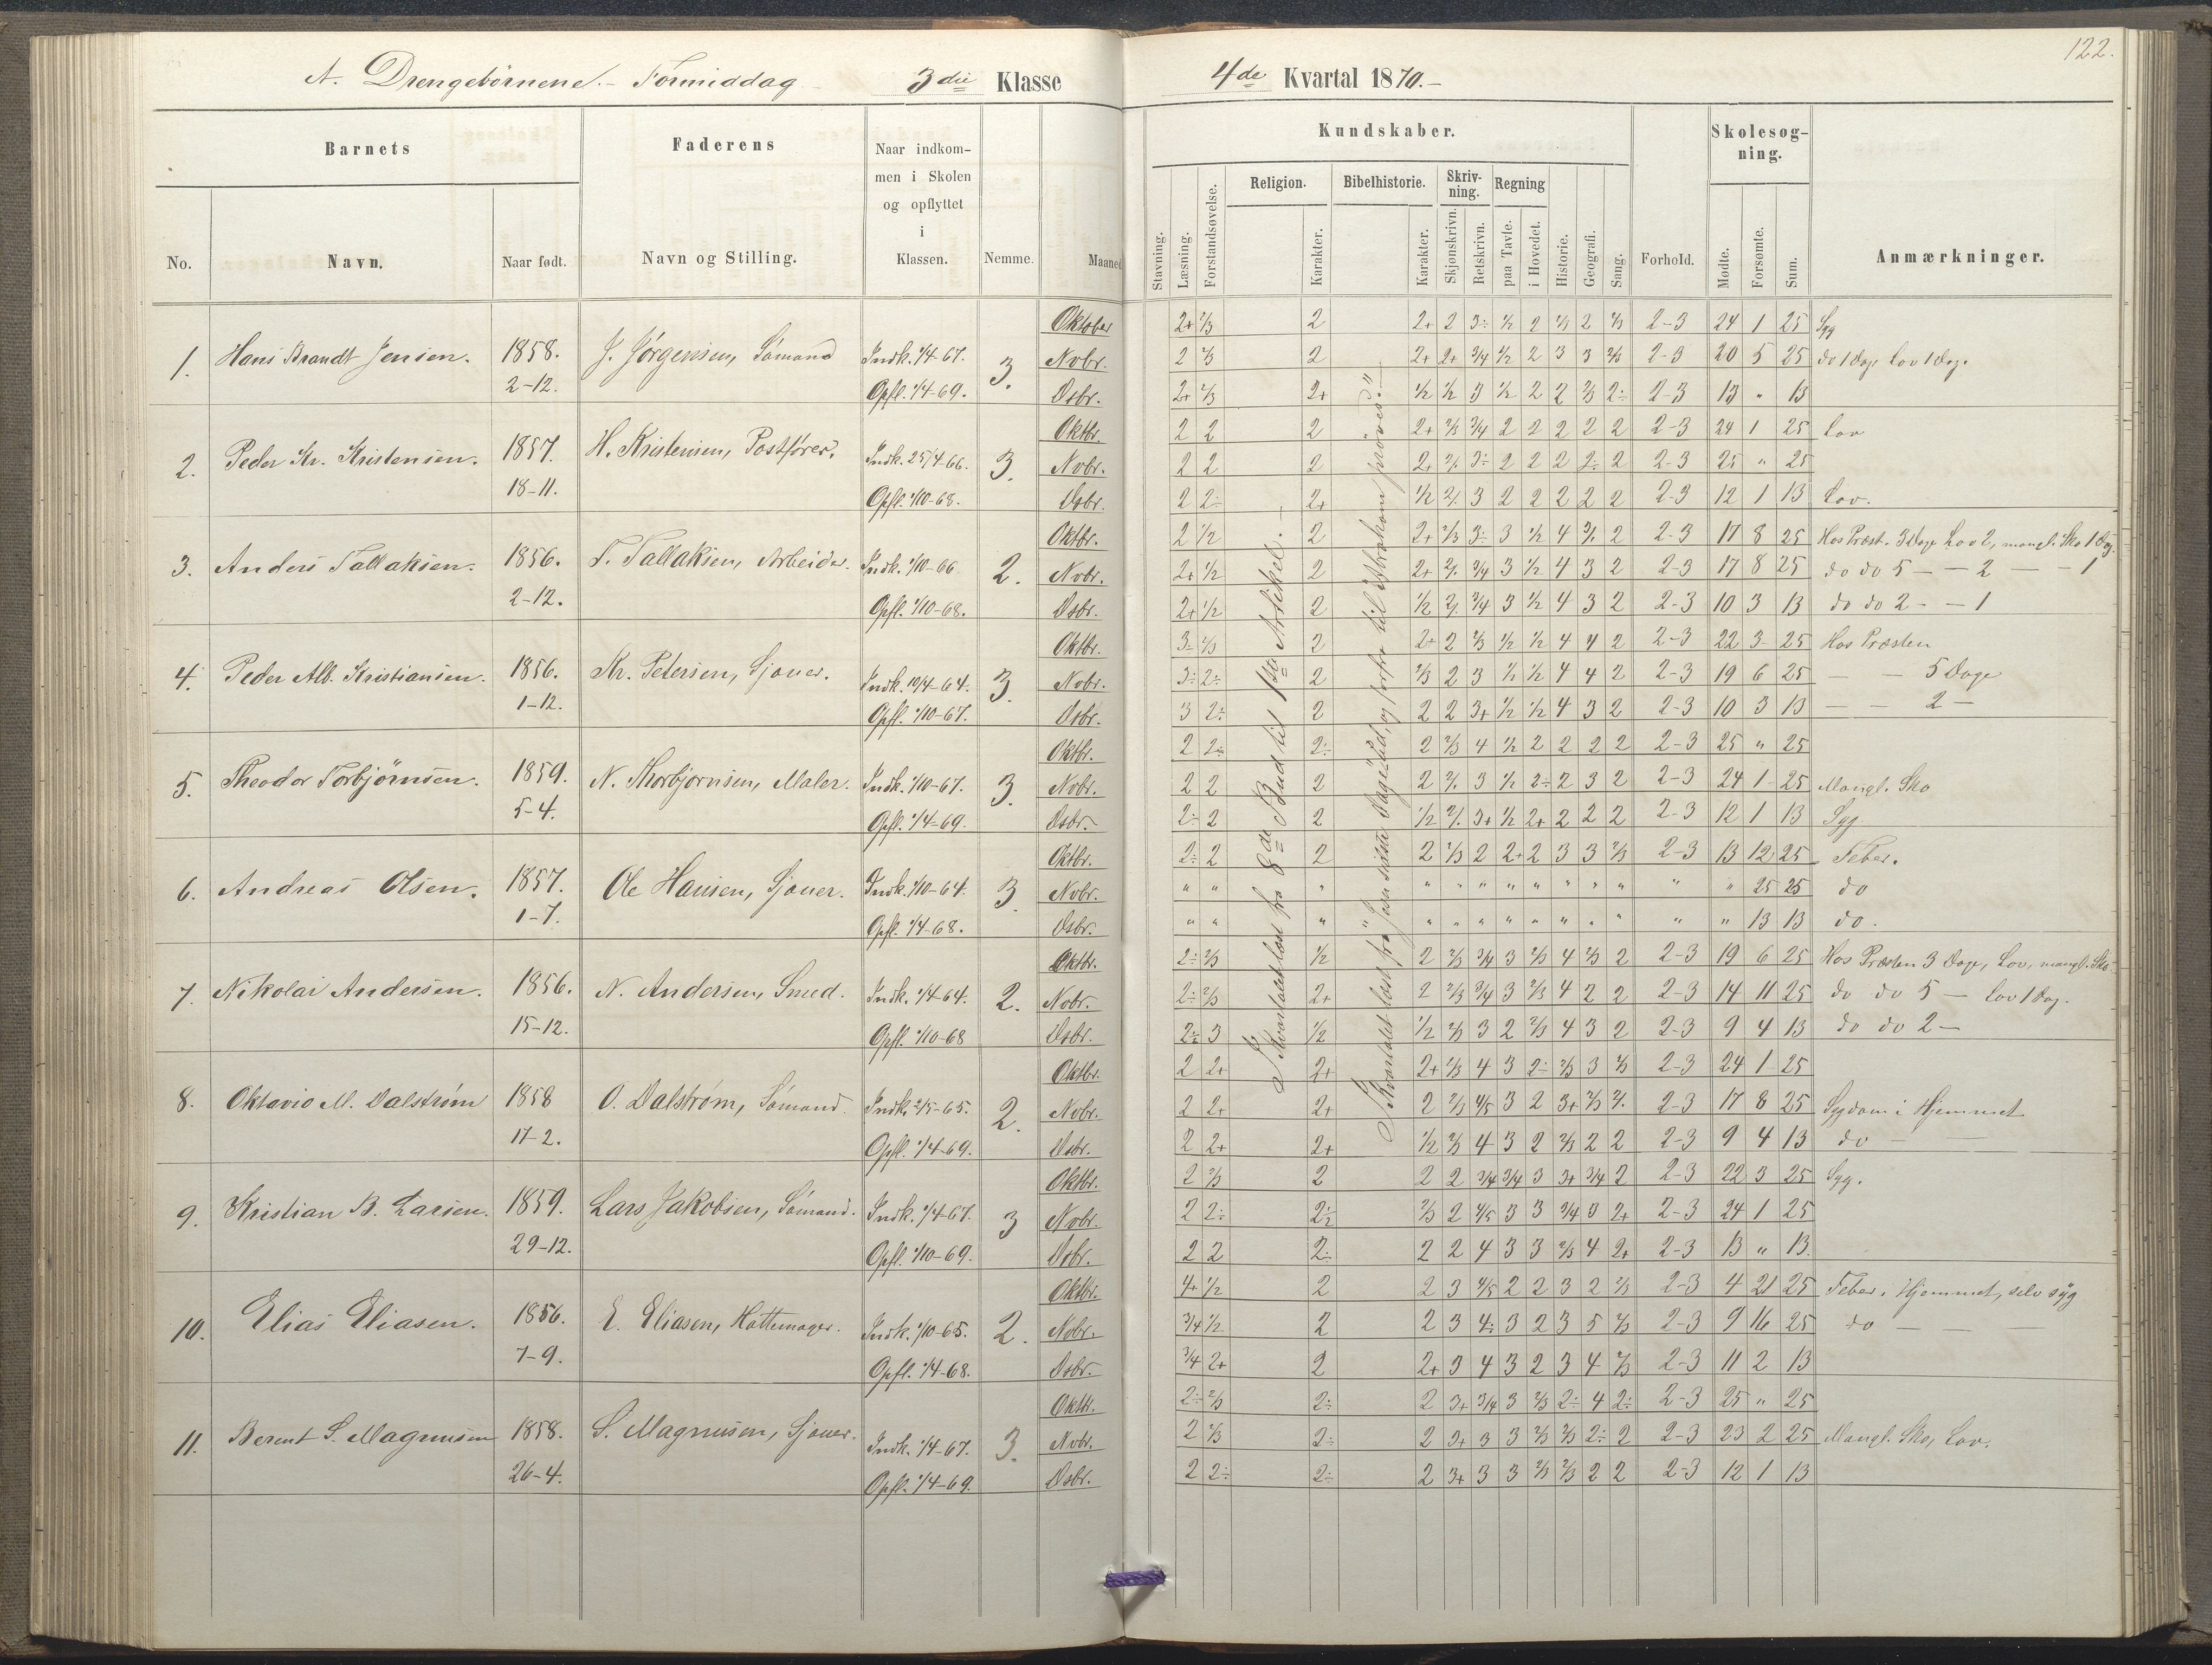 122.
A. Drengebörnene. - Formiddag 3die Klasse 4de Kvartal 1870.-
Barnets Faderens Naar indkommen i Skolen og opflyttet i Klassen. Nemme. Maaned
No. Navn. Naar født. Navn og Stilling.
Kundskaber. Skolesøgning.
Stavning. Læsning. Forstandsøvelse. Religion. Karakter. Bibelhistorie. Karakter. Skrivning. Skjönskrivn. Retskrivn. Regning paa Tavle. i Hovedet. Historie. Geografi. Sang. Forhold. Mødte. Forsømte. Sum. Anmærkninger.
1. Hans Brandt Jensen. 1858. 2-12. J. Jørgensen, Sömand Indk. 1/4-67. Opfl. 1/4-69. 3.
Oktober 2+ 2/3 2 2+ 2 3÷ 1/2 2 2/3 2 2/3 2-3 24 1 25 Syg
Nobr. 2 2/3 2 2+ 2+ 3/4 1/2 2 3 3 2/3 2-3 20 5 25 do 1 Dag Lov 1 Dag.
Dsbr. 2+ 2/3 2+ 1/2 1/2 3 1/2 2 2 2/3 2÷ 2-3 13 " 13
2. Peder Kr. Kristensen. 1857. 18-11. H. Kristensen, Postfører. Indk. 25/4-66. Opfl. 1/10-68. 3.
Oktbr. 2 2 2 2+ 2/3 3/4 2 2 2 2 2 2-3 24 1 25 Lov
Nobr. 2 2 2 2+ 2/3 3÷ 2 2 2 2÷ 2 2-3 25 " 25
Dsbr. 2 2÷ 2+ 1/2 2/3 3 2 2 2 2 2 2-3 12 1 13 Lov.
3. Anders Tallaksen. 1856. 2-12. T. Tallaksen, Arbeider. Indk. 1/10-66 Opfl. 1/10-68. 2.
Oktbr. 2 1/2 2 2+ 2/3 3÷ 3 1/2 4 3/4 2 2-3 17 8 25 Hos Præst. 3 Dage Lov 2, mangl. Sko 1 Dag.
Nobr. 2+ 1/2 2 2+ 2/3 3/4 3 1/2 4 3 2 2-3 17 8 25 do do 5 - - 2 - - 1
Dsbr. 2+ 1/2 2 1/2 2/3 3/4 3 1/2 4 3 2 2-3 10 3 13 do do 2 - - 1
4. Peder Alb. Kristiansen. 1856. 1-12. Kr. Petersen, Sjouer. Indk. 19/4-64. Opfl. 1/10-67. 3.
Oktbr. 3÷ 2/3 2 2+ 2 2/3 1/2 1/2 4 4 2 2-3 22 3 25 Hos Præsten
Nobr. 3÷ 2÷ 2 2/3 2 3 1/2 1/2 4 4 2 2-3 19 6 25 - - 5 Dage
Dsbr. 3 2÷ 2 2 2 3+ 1/2 1/2 4 3 2 2-3 10 3 13 - - 2 -
5. Theodor Torbjørnsen. 1859. 5-4. N. Thorbjørnsen, Maler. Indk. 1/10-67. Opfl. 1/4-69. 3.
Oktbr. 2 2÷ 2÷ 2 2/3 4 1/2 2 2 2 2 2-3 25 " 25
Nobr. 2 2 2 2 2/3 3 1/2 2÷ 2 3 2 2-3 24 1 25 Mangl. Sko
Dsbr. 2÷ 2 2 1/2 2/3 3+ 1/2 2+ 2 2 2 2-3 12 1 13 Syg
6. Andreas Olsen. 1857. 1-7. Ole Hansen, Sjouer. Indk. 1/10-64. Opfl. 1/4-68. 3
Oktbr. 2÷ 2 2 2 2/3 2 2+ 2 3 3 2/3 2-3 13 12 25 Feber.
Nobr. " " " " " " " " " " " " " 25 25 do
Dsbr. " " " " " " " " " " " " " 13 13 do.
7. Nikolai Andersen. 1856. 15-12. N. Andersen, Smed. Indk. 1/4-64. Opfl. 1/10-68 2.
Oktbr. 2÷ 2/3 1/2 2 2/3 3/4 3 2/3 4 2/3 2 2-3 19 6 25 Hos Præsten 3 Dage, Lov, mangl. Sko
Nobr. 2÷ 2/3 2+ 2 2/3 3/4 3 2/3 4 2 2 2-3 14 11 25 do do 5 - Lov 1 Dag.
Dsbr. 2÷ 3 1/2 1/2 2/3 3 2 2/3 4 3 2 2-3 9 4 13 do do 2 -
8. Oktavio M. Dalström 1858 17-2. O. Dalström, Sömand. Indk. 2/5-65. Opfl. 1/4-69. 2.
Oktbr. 2 2+ 2+ 2+ 2/3 4 3 2÷ 2/3 3 2/3 2-3 24 1 25
Nobr. 2 2+ 2+ 2 2/3 4/5 3 2 3+ 2/3 2/3 2-3 17 8 25 Sygdom i Hjemmet
Dsbr. 2 2+ 2+ 1/2 2/3 4 3 2 2/3 2 2 2-3 9 4 13 do -
9. Kristian B. Larsen. 1859. 29-12. Lars Jakobsen, Sömand. Indk. 1/4-67. Opfl. 1/10-69. 3
Oktbr. 2 2/3 2 2 2 3/4 3/4 3 3+ 3/4 2 2-3 22 3 25 Syg.
Nobr. 2 2÷ 2÷ 2/3 2 4/5 3 3 3/4 0 2+ 2-3 24 1 25
Dsbr. 2 2 2÷ 2 2 4 3 3 2/3 4 2+ 2-3 13 " 13
10. Elias Eliasen. 1856. 7-9. E. Eliasen, Hattemager. Indk. 1/10-65. Opfl. 1/4-68. 2.
Oktbr. 4+ 1/2 2 2 3 4/5 2 2 3 2 2/3 2-3 4 21 25 Feber i Hjemmet, selv syg
Nobr. 3/4 1/2 2 2 3 4÷ 3 2 3 5 2/3 2-3 9 16 25 do - -
Dsbr. 3/4 2+ 2 2+ 3 4 3 2 3 4 2/3 2-3 11 2 13
11. Berent S. Magnusen 1858. 26-4. S. Magnusen, Sjouer. Indk. 1/4-67. Opfl. 1/4-69. 3.
Oktbr. 2÷ 2/3 2÷ 2 3+ 3/4 3 2/3 2÷ 4 2÷ 2-3 25 " 25
Nobr. 2 2/3 2÷ 2 3+ 3 3 2/3 2/3 2÷ 2 2-3 23 2 25 Mangl. Sko, Lov.
Dsbr. 2 2÷ 2÷ 2 3+ 3 3 2/3 2/3 2 2 2-3 12 1 13
I Kvartalet læst fra 8de Bud til 1ste Artikel. -
I Kvartalet læst fra "Jesu sidste og til